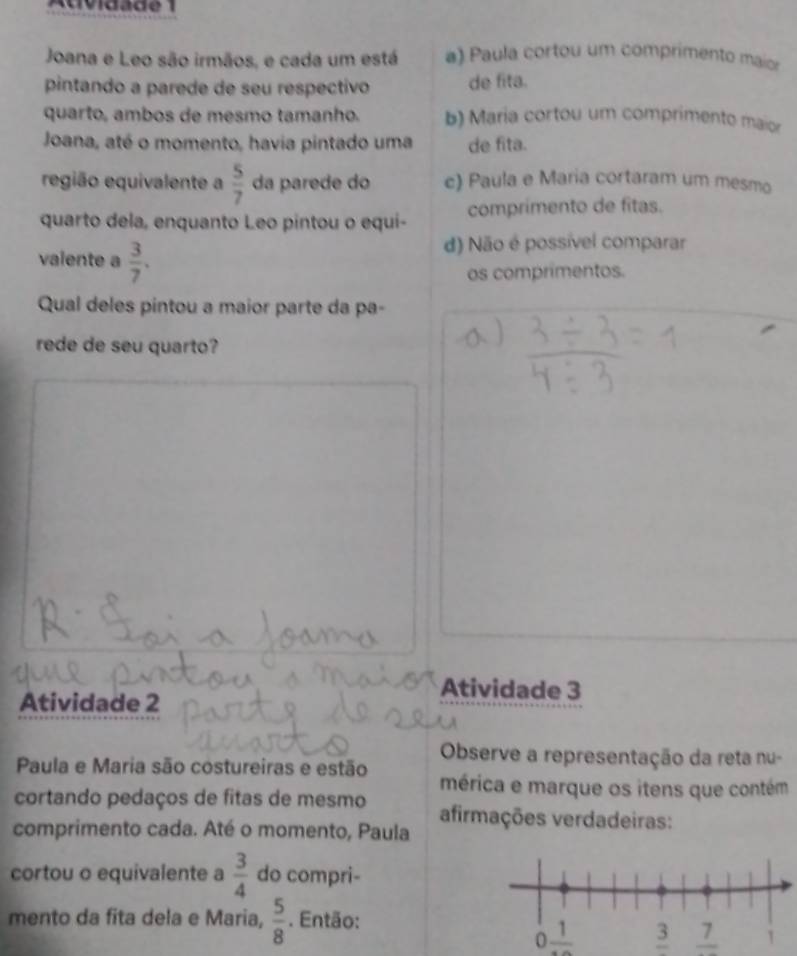 Atividade 1
Joana e Leo são irmãos, e cada um está
pintando a parede de seu respectivo
quarto, ambos de mesmo tamanho.
Joana, até o momento, havia pintado uma
região equivalente a 5/7 da parede do
quarto dela, enquanto Leo pintou o equi-
valente a 3/7.
Qual deles pintou a maior parte da pa-
rede de seu quarto?
R: Foi a Joama
que pintou a maior
parte de seu
quarto
Atividade 2
Paula e Maria são costureiras e estão
cortando pedaços de fitas de mesmo
comprimento cada. Até o momento, Paula
cortou o equivalente a 3/4 do compri-
mento da fita dela e Maria, 5/8. Então:
a) Paula cortou um comprimento maior
de fita.
b) Maria cortou um comprimento maior
de fita.
c) Paula e Maria cortaram um mesmo
comprimento de fitas.
d) Não é possível comparar
os comprimentos.
a) 3 ÷ 3 = 1
4 ÷ 3
Atividade 3
Observe a representação da reta nu-
mérica e marque os itens que contém
afirmações verdadeiras:
0 1 3 7 1